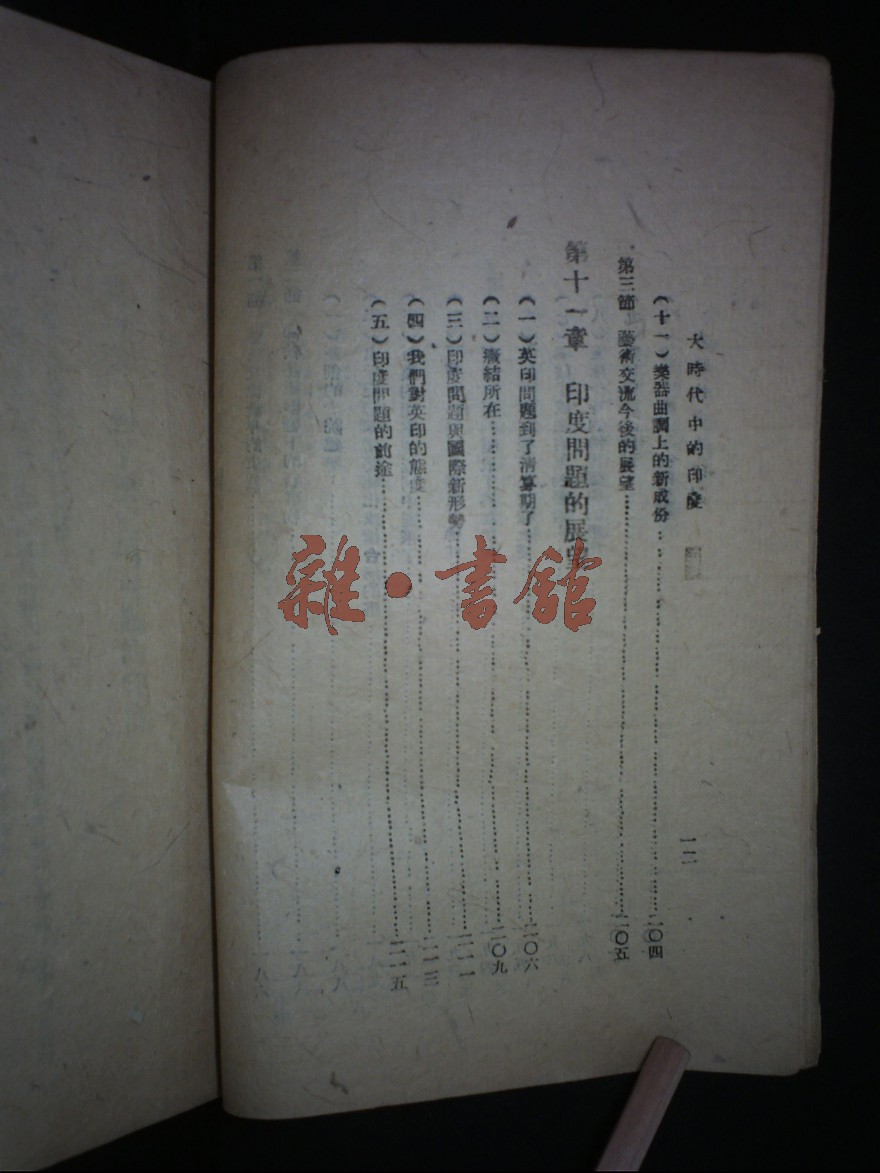 大時代中的印度
(十一)樂器曲調上的新成份……二〇四
第三節 藝術交流今後的展望……二〇五
第十一章 印度問題的展望
(一)英印問題到了清算期了……二〇六
(二)癥結所在……二〇九
(三)印度問題與國際新形勢……二一一
(四)我們對英印的態度……二一三
(五)印度問題的前途……二一五
雜·書館